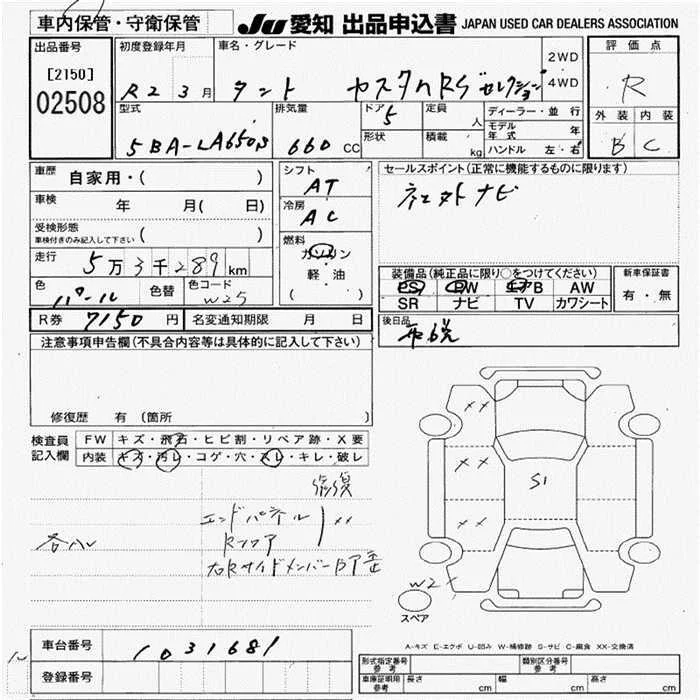 車内保管・守衛保管
JU 愛知 出品申込書 JAPAN USED CAR DEALERS ASSOCIATION
出品番号
[2150]
02508
初度登録年月
R2 3月
車名・グレード
タント カスタムRSセレクション
2WD
4WD
評価点
R
外装 内装
B C
型式
5BA-LA650S
排気量
660 CC
ドア
5
形状
定員
人
積載
kg
ディーラー・並行
モデル年式 年
ハンドル 左・右
車歴 自家用・( )
車検 年 月( 日)
受検形態
車検付きのみ記入して下さい ( )
走行 5万3千289km
色 パール 色替 色コード W25
シフト
AT
冷房
AC
燃料
ガソリン
・
軽・油
( )
セールスポイント(正常に機能するものに限ります)
社外ナビ
装備品(純正品に限り○をつけてください)
PS PW エアB AW
SR ナビ TV カワシート
新車保証書
有・無
R券 7150円 名変通知期限 月 日
後日品
注意事項申告欄(不具合内容等は具体的に記入して下さい)
修復歴 有(箇所 )
検査員記入欄
FW キズ・飛石・ヒビ割・リペア跡・X要
内装 キズ・汚レ・コゲ・穴・スレ・キレ・破レ
修復
エンドパネル XX
Rフロア
右RサイドメンバーBア
XX
XX
XX
S1
W2
スペア
A-キズ E-エクボ U-凹み W-補修跡 S-サビ C-腐食 XX-交換済
車台番号 1031681
登録番号
形式指定番号 参考
類別区分番号 参考
車庫証明用 参考 長さ cm 幅 cm 高さ cm